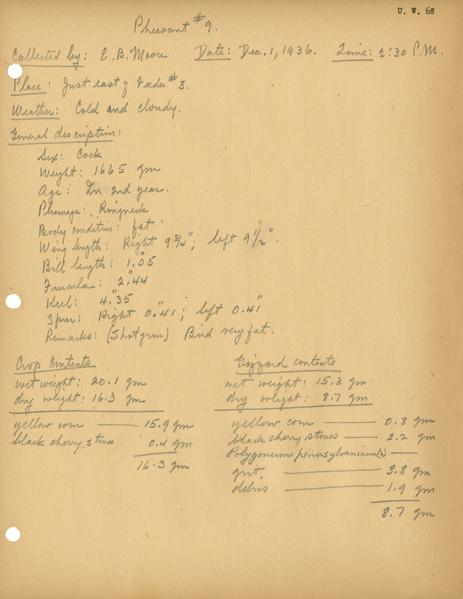 U. W. 68
Pheasant #9.
Collected by: E. B. Moore Date: Dec. 1, 1936. Time: 2:30 P.M.
Place: Just east of Feeder #3.
Weather: Cold and cloudy.
General description:
Sex: Cock
Weight: 1665 gm
Age: In 2nd year.
Plumage: Ringneck
Body condition: fat
Wing length: Right 9 3/4"; left 9 1/2".
Bill length: 1".05
Furcula: 2".44
Keel: 4".35
Spur: Right 0".41; left 0.41"
Remarks: (Shotgun) Bird very fat.
Crop Contents
wet weight: 20.1 gm
dry weight: 16.3 gm
yellow corn 15.9 gm
black cherry stones 0.4 gm
16.3 gm
Gizzard contents
wet weight: 15.3 gm
dry weight: 8.7 gm
yellow corn 0.8 gm
black cherry stones 2.2 gm
Polygonum pennsylvanicum(2)
grit. 3.8 gm
debris 1.9 gm
8.7 gm